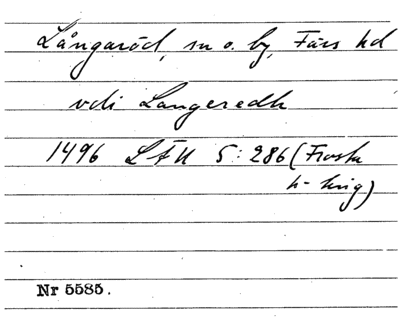 Långaröd, sn o. by, Färs hd
vdi Langeredh
1496 LÄU 5:286 (Frosta
h-ting)
Nr 5585.